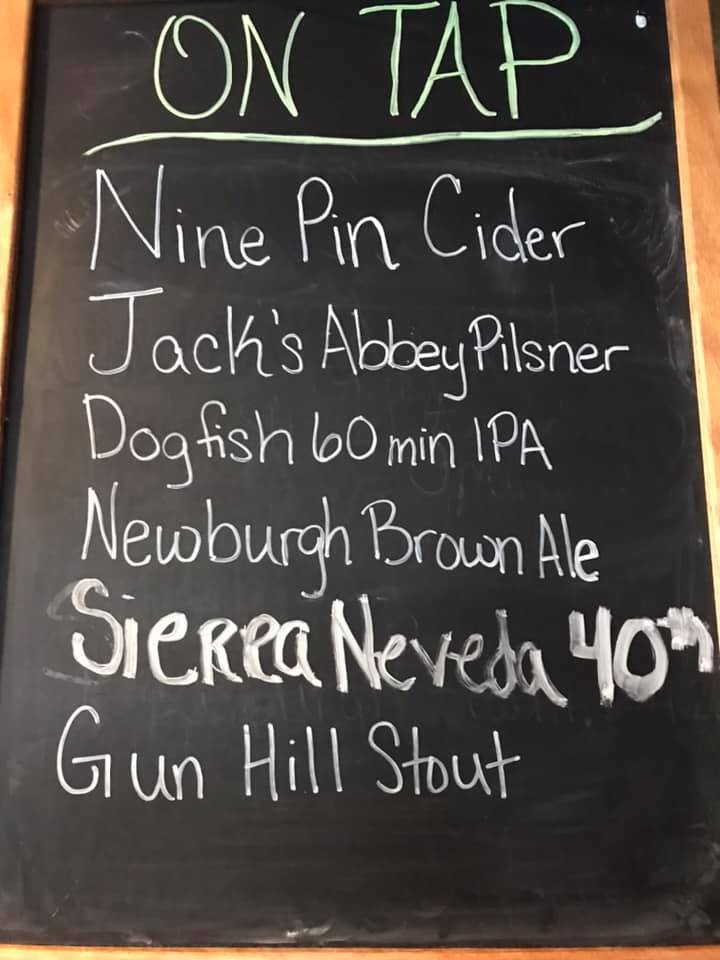 ON TAP
Nine Pin Cider
Jack's Abbey Pilsner
Dogfish 60 min IPA
Newburgh Brown Ale
Sierra Neveda 40th
Gun Hill Stout